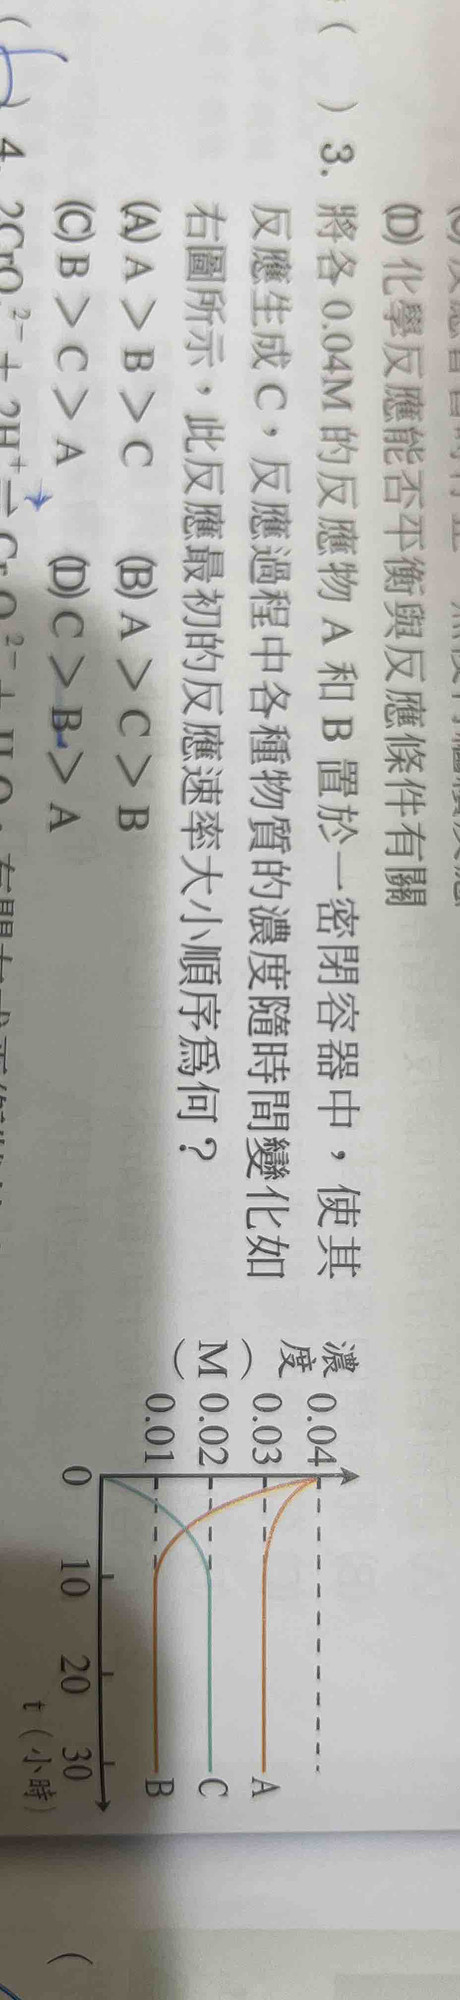 (D) 化學反應能否平衡與反應條件有關
( ) 3. 將各 0.04M 的反應物 A 和 B 置於一密閉容器中，使其
反應生成 C，反應過程中各種物質的濃度隨時間變化如
右圖所示，此反應最初的反應速率大小順序為何？
(A) A > B > C (B) A > C > B
(C) B > C > A (D) C > B > A
濃度(M)
0.04
0.03
0.02
0.01
0 10 20 30
t（小時）
A
C
B
4. 2CrO₄²⁻ + 2H⁺ ⇌